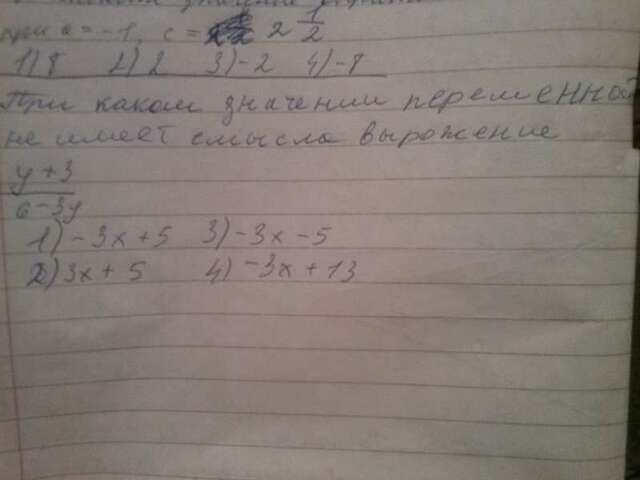 при a = -1, c = 2 1/2
1) 8 2) 2 3) -2 4) -8
При каком значении переменной
не имеет смысла вырожение
y + 3
6 - 3y
1) -3x + 5 3) -3x - 5
2) 3x + 5 4) -3x + 13